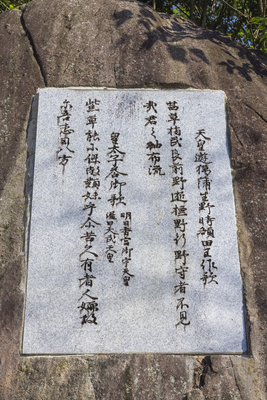 天皇遊獦蒲生野時額田王作歌
茜草指武良前野逝標野行野守者不見
哉君之袖布流
皇太子答御歌
明日香宮御宇天皇
謚曰天武天皇
紫草能尓保敝類妹乎尓苦久有者人嬬故
尓吾戀目八方